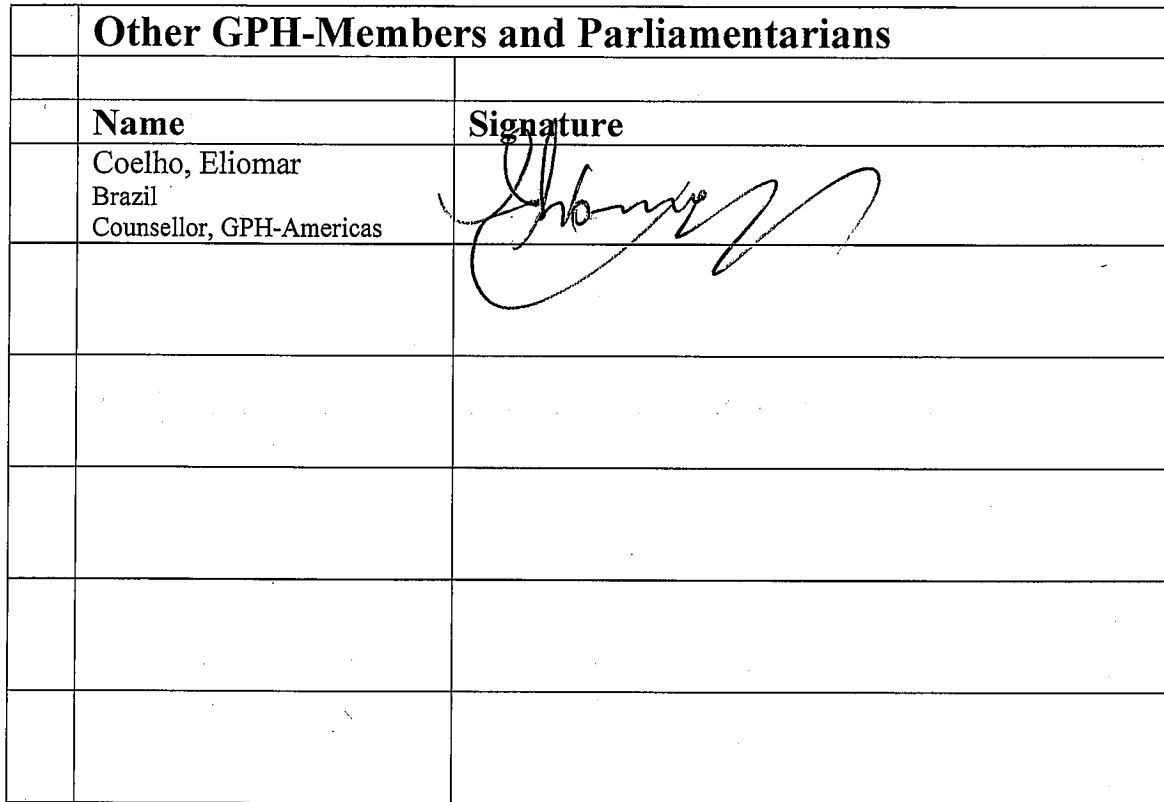 Other GPH-Members and Parliamentarians
Name Signature
Coelho, Eliomar
Brazil
Counsellor, GPH-Americas